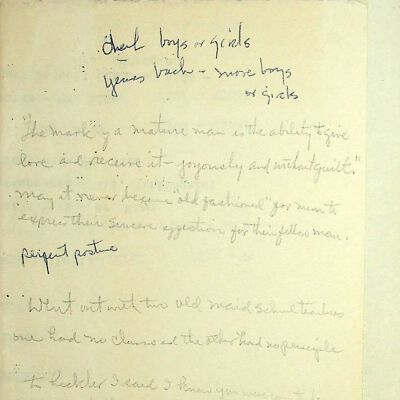 check boys or girls
years back - more boys
or girls
"The mark" of a mature man is the ability to give
love and receive it - joyously and without guilt."
May it "never become "old fashioned" for men to
express their sincere affection for their fellow man.
serpent posture
Went out with two old maid school teachers
one had no class and the other had no principle
To heckler I said I knew you were